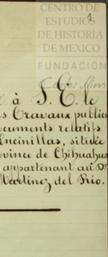 1.
CENTRO DE
ESTUDIOS
DE HISTORIA
DE MEXICO
FUNDACIÓN
Carlos Slim
e à S. E. le
s Travaux publics
ocuments relatifs
Encinillas, située
rovince de Chihuahua
appartenant au Dr
Martinez del Rio.